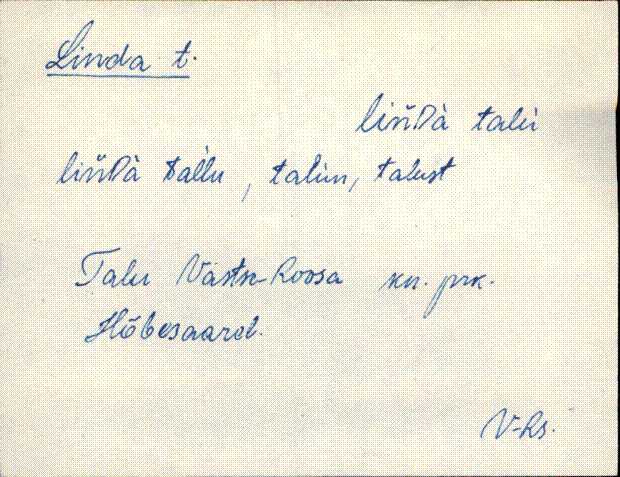 Linda t.
lin̆Dà talu
lin̆Dà tàllu, talun, talust
Talu Vastse-Roosa kn. prk.
Hõbesaarel.
V-Rs.